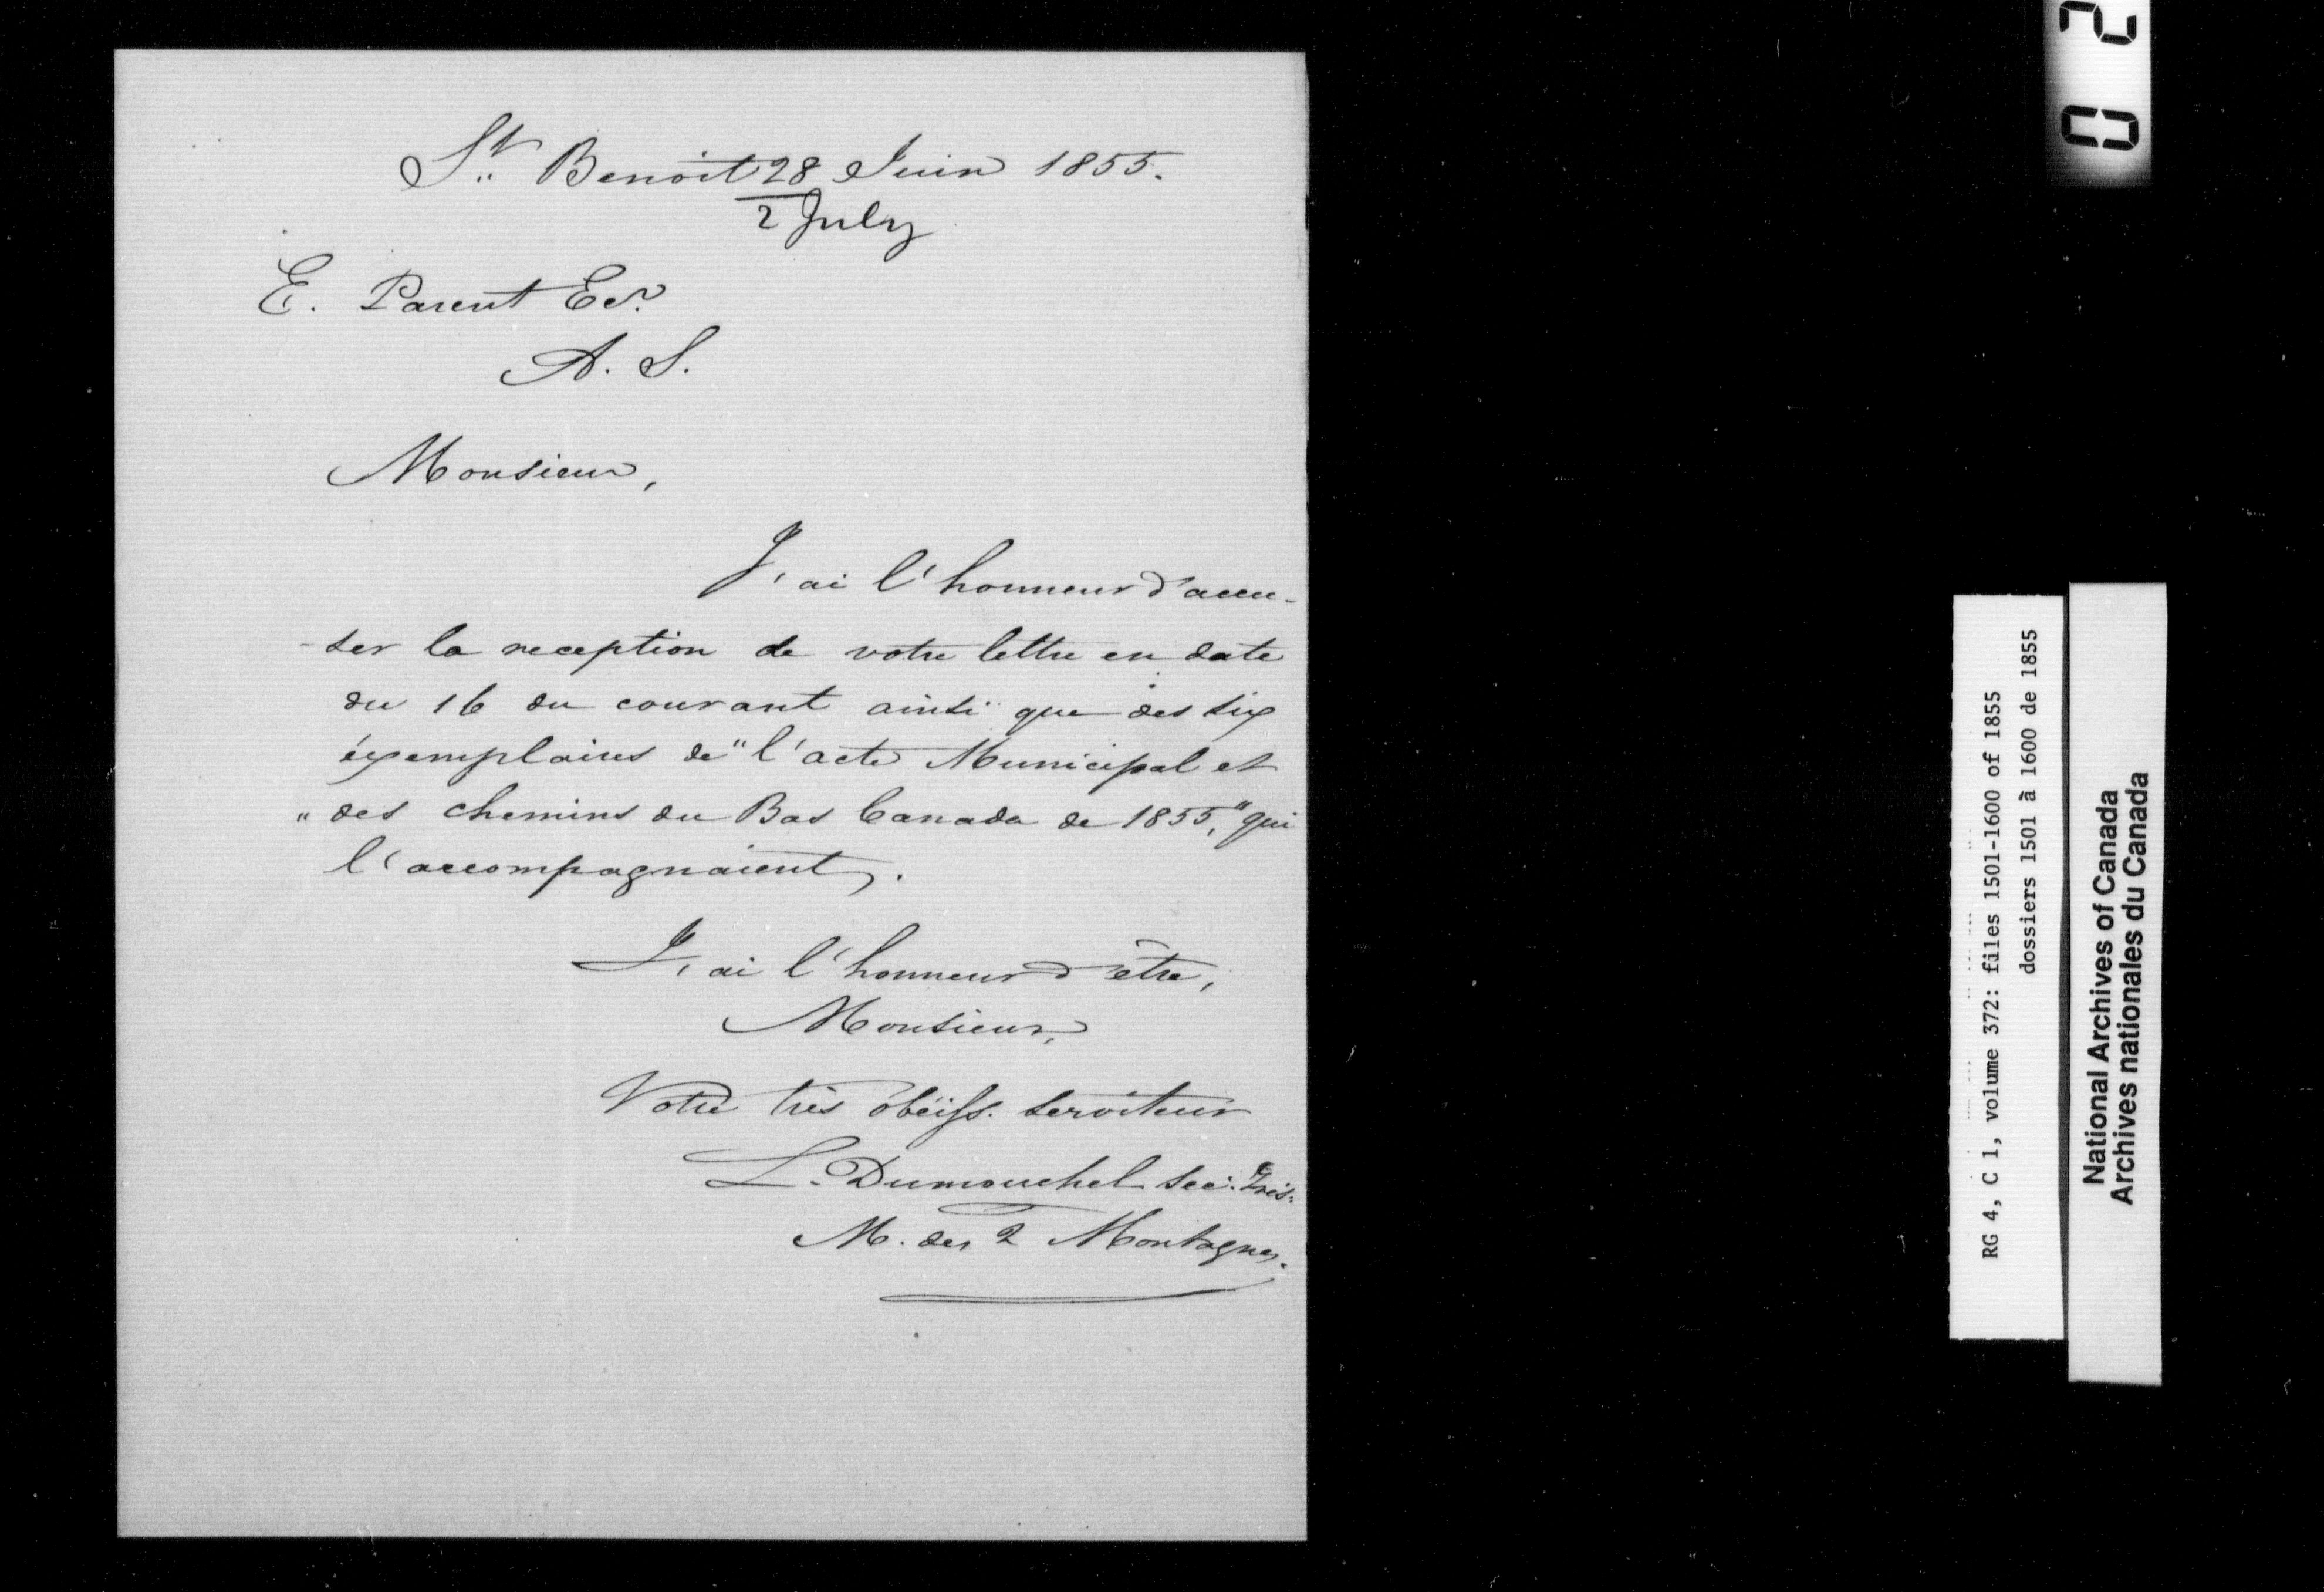 St. Benoit 28 Juin 1855.
2 July
E. Parent Ecr.
A. S.
Monsieur,
J'ai l'honneur d'accu-
-ser la reception de votre lettre en date
du 16 du courant ainsi que des six
éxemplaires de "l'acte Municipal et
"des chemins du Bas Canada de 1855," qui
l'accompagnaient.
J'ai l'honneur d'être,
Monsieur,
Votre très obéiss. serviteur
L. Dumouchel Sec. Trés.
M. des 2 Montagnes.
0 2
RG 4, C 1, volume 372: files 1501-1600 of 1855
dossiers 1501 à 1600 de 1855
National Archives of Canada
Archives nationales du Canada